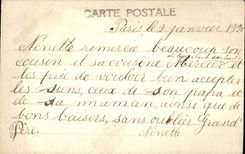 CARTE POSTALE
Paris, le 2 janvier 192
Ninette remercie beaucoup son
cousin et sa cousine et
les prie de vouloir bien accepter
les siens, ceux de son papa et
de sa maman, ainsi que de
bons baisers, sans oublier Grand
Père.
Ninette